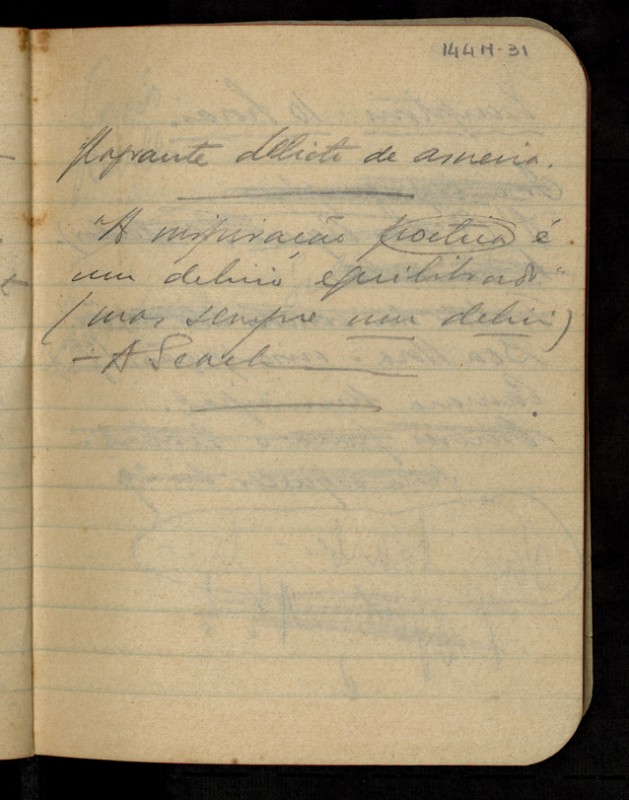 144N-31
flagrante delicto de asneira.
"A inspiração poetica é
um delirio equilibrado"
(mas sempre um delirio)
- A Search